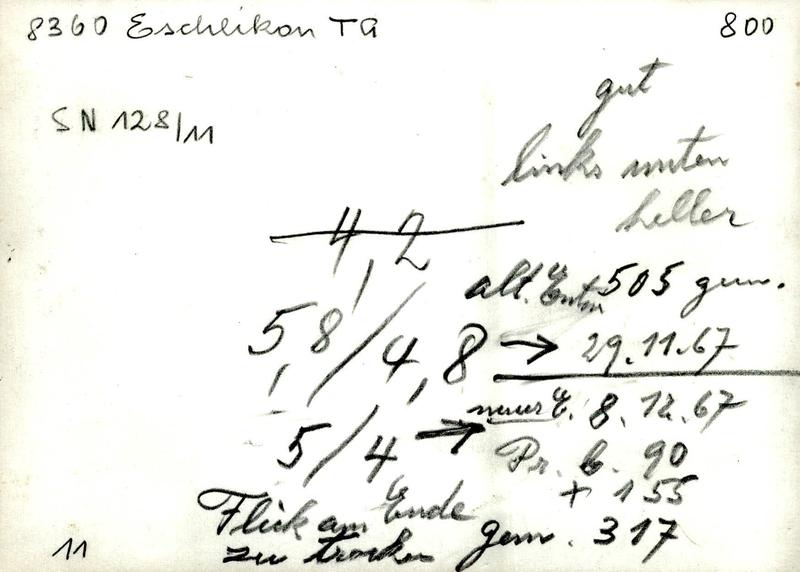 8360 Eschlikon TG
800
SN 128/11
gut
links unten
heller
4,2
alt. Entw 505 gem.
5,8/4,8 → 29.11.67
neuer E. 8.12.67
5/4 → Pr. b. 90
+ 155
Flick am Ende
zu trocken gem. 317
11